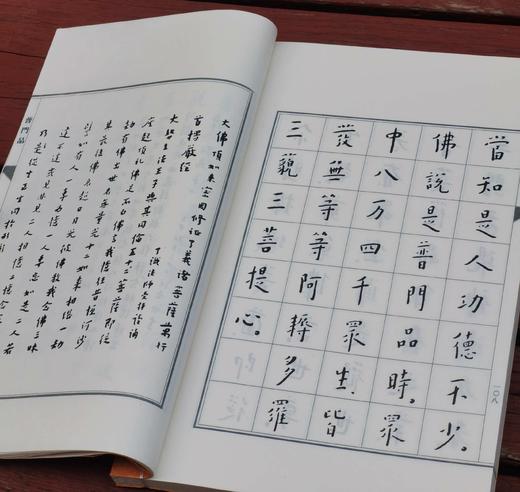 當知是人功德不少。
佛說是普門品時。眾
中八万四千眾生。皆
發無等等阿耨多羅
三藐三菩提心。
一〇八
大佛頂如來密因修證了義諸菩薩萬行
首楞嚴經
法師受持讀誦
大勢至法王子與其同倫五十二菩薩即從
座起頂禮佛足而白佛言我憶往昔恒河沙
劫有佛出世名無量光十二如來相繼一劫
其最後佛名超日月光彼佛教我念佛三昧
譬如有人一專為憶一人專忘如是二人若
逢不逢或見非見二人相憶二憶念
乃至從生至生同於形影
普門品